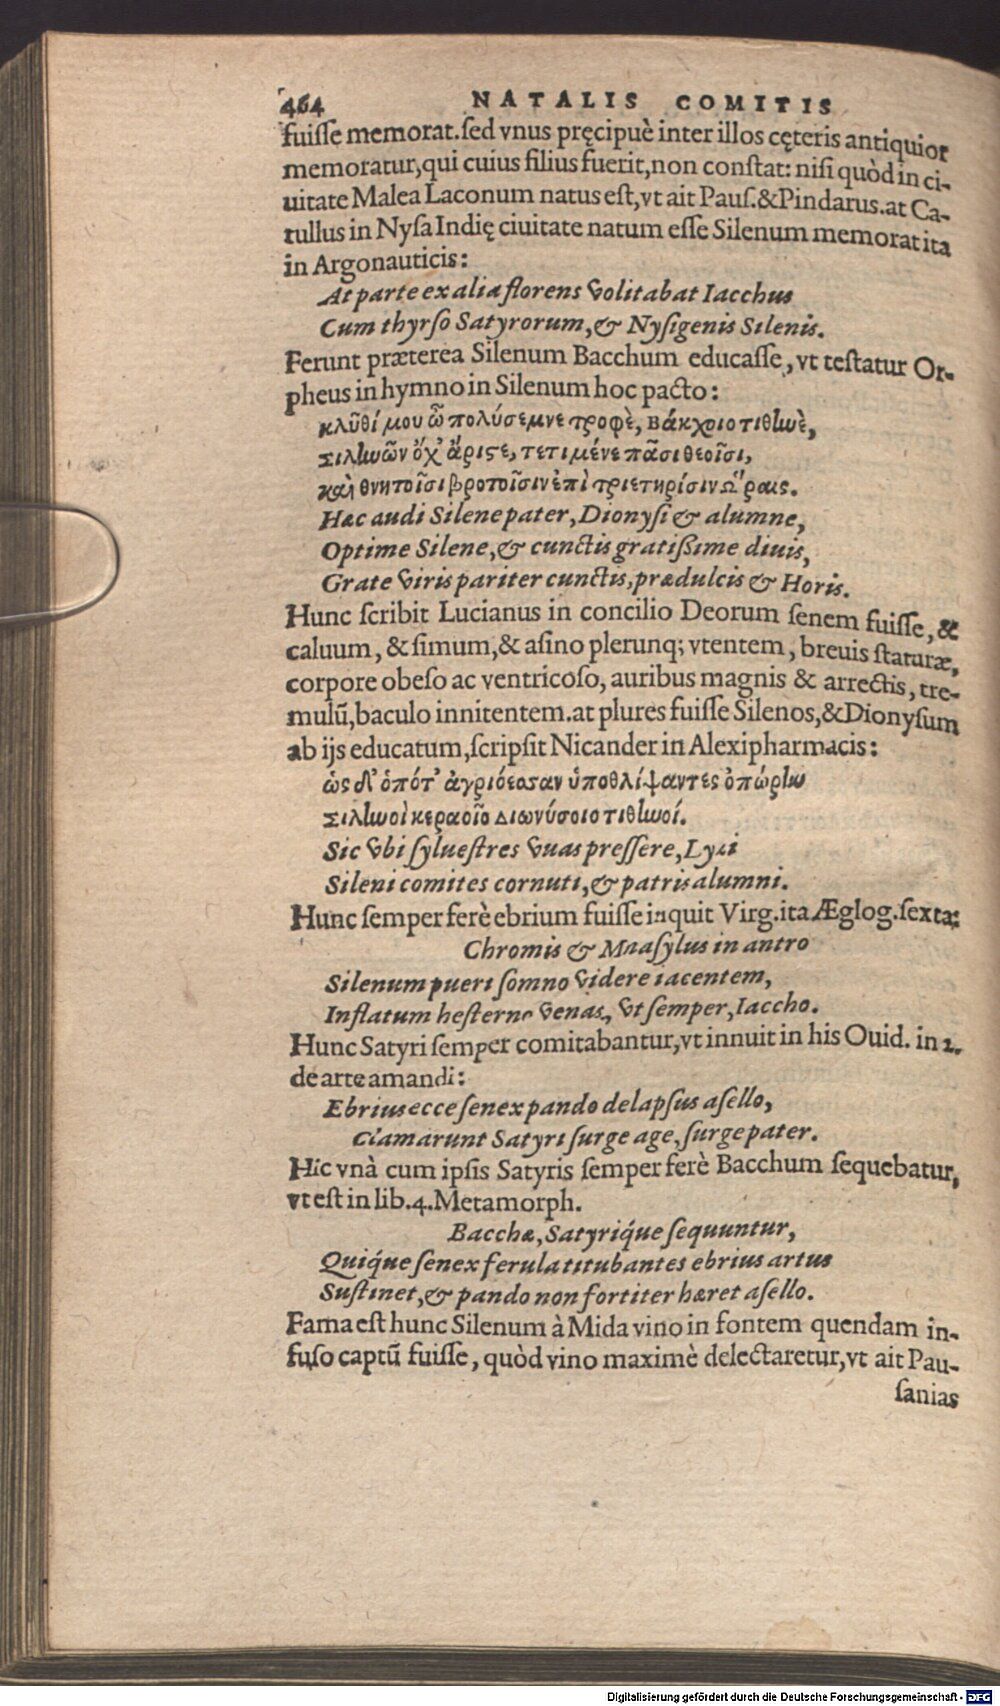 464 NATALIS COMITIS
fuiſſe memorat. ſed vnus pręcipuè inter illos cęteris antiquior
memoratur, qui cuius filius fuerit, non conſtat: niſi quòd in ci-
uitate Malea Laconum natus eſt, vt ait Pauſ. & Pindarus. at Ca-
tullus in Nyſa Indię ciuitate natum eſſe Silenum memorat ita
in Argonauticis:
At parte ex alia florens volitabat Iacchus
Cum thyrſo Satyrorum, & Nyſigenis Silenis.
Ferunt præterea Silenum Bacchum educaſſe, vt teſtatur Or-
pheus in hymno in Silenum hoc pacto:
κλῦθί μου ὦ πολύσεμνε τροφὲ, Βάκχοιο τιθηνὲ,
Σιληνῶν ὄχ' ἄριστε, τετιμένε πᾶσι θεοῖσι,
καὶ θνητοῖσι βροτοῖσιν ἐπὶ τριετηρίσιν Ὥραις.
Hæc audi Silene pater, Dionyſi & alumne,
Optime Silene, & cunctis gratißime diuis,
Grate viris pariter cunctis, prædulcis & Horis.
Hunc ſcribit Lucianus in concilio Deorum ſenem fuiſſe, &
caluum, & ſimum, & aſino plerunq; vtentem, breuis ſtaturæ,
corpore obeſo ac ventricoſo, auribus magnis & arrectis, tre-
mulū, baculo innitentem. at plures fuiſſe Silenos, & Dionyſum
ab ijs educatum, ſcripſit Nicander in Alexipharmacis:
ὡς δ' ὁπότ' ἀγριόεσσαν ὑποθλίψαντες ὀπώρην
Σιληνοὶ κεραοῖο Διωνύσοιο τιθηνοί.
Sic vbi ſylueſtres vuas preſſere, Lyæi
Sileni comites cornuti, & patris alumni.
Hunc ſemper ferè ebrium fuiſſe inquit Virg. ita Æglog. ſexta:
Chromis & Mnaſylus in antro
Silenum pueri ſomno videre iacentem,
Inflatum heſterno venas, vt ſemper, Iaccho.
Hunc Satyri ſemper comitabantur, vt innuit in his Ouid. in 1.
de arte amandi:
Ebrius ecce ſenex pando delapſus aſello,
Clamarunt Satyri ſurge age, ſurge pater.
Hic vnà cum ipſis Satyris ſemper ferè Bacchum ſequebatur,
vt eſt in lib. 4. Metamorph.
Bacchæ, Satyriq́ue ſequuntur,
Quiq́ue ſenex ferula titubantes ebrius artus
Suſtinet, & pando non fortiter hæret aſello.
Fama eſt hunc Silenum à Mida vino in fontem quendam in-
fuſo captū fuiſſe, quòd vino maximè delectaretur, vt ait Pau-
ſanias
Digitalisierung gefördert durch die Deutsche Forschungsgemeinschaft - DFG